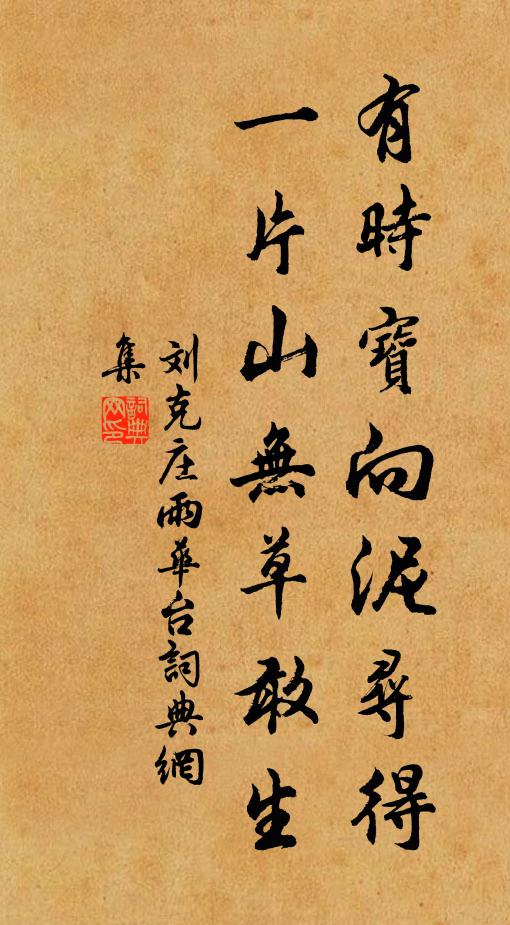 有時寶向泥尋得
一片山無草敢生
刘克庄雨華台詞典網
集
詞典網印